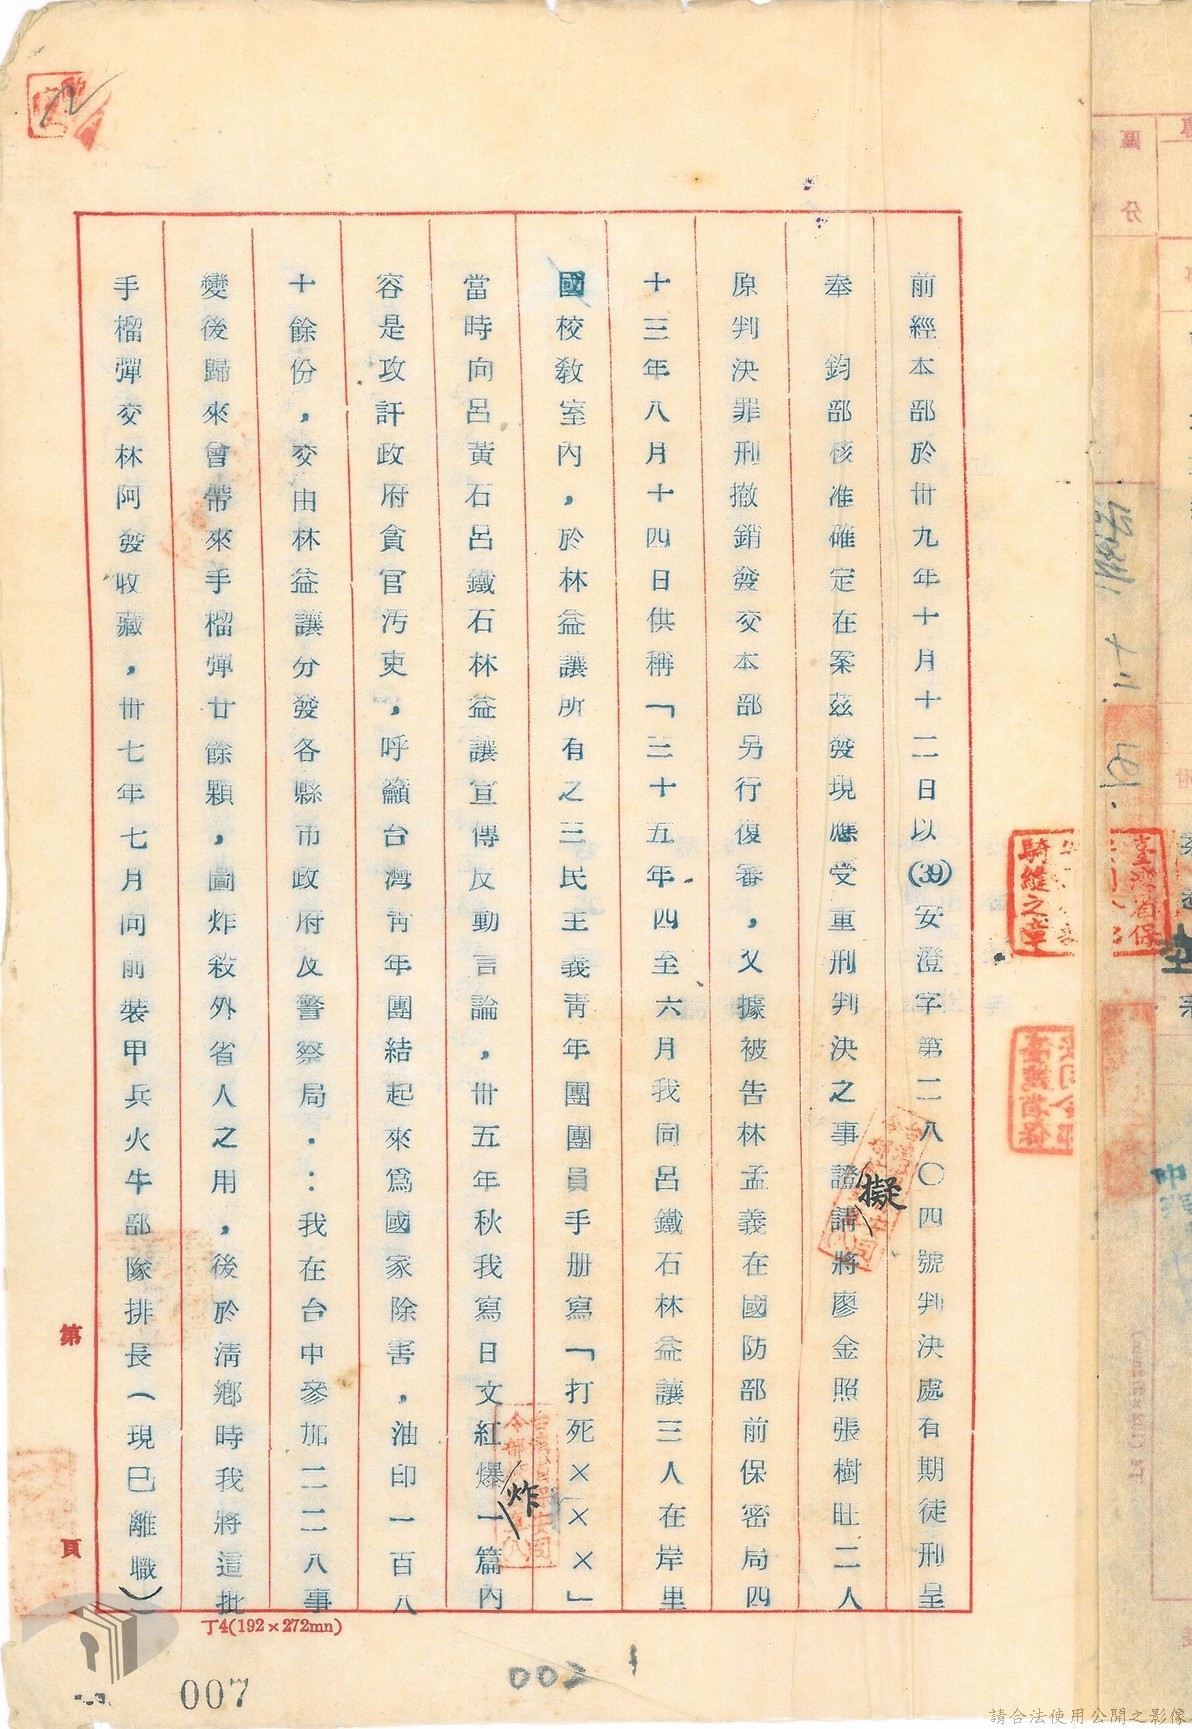 前經本部於卅九年十月十二日以(39)安澄字第二八〇四號判決處有期徒刑呈
奉　鈞部核准確定在案茲發現應受重刑判決之事證擬請將廖金照張樹旺二人
原判決罪刑撤銷發交本部另行復審，又據被告林孟義在國防部前保密局四
十三年八月十四日供稱「三十五年四至六月我同呂鐵石林益讓三人在岸里
國校教室內，於林益讓所有之三民主義靑年團團員手册寫「打死×××」
當時向呂黃石呂鐵石林益讓宣傳反動言論，卅五年秋我寫日文紅爆炸一篇內
容是攻訐政府貪官汚吏，呼籲台灣靑年團結起來爲國家除害，油印一百八
十餘份，交由林益讓分發各縣市政府及警察局．：我在台中參加二二八事
變後歸來曾帶來手榴彈廿餘顆，圖炸殺外省人之用，後於淸鄉時我將這批
手榴彈交林阿發收藏，卅七年七月向前裝甲兵火牛部隊排長(現已離職)
第　頁
丁4(192×272mn)
007
002
騎縫之章
臺灣省保
請合法使用公開之影像